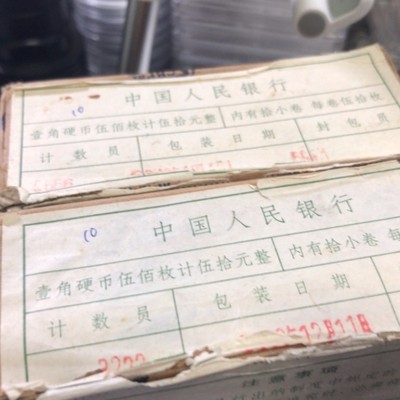 中国人民银行
10
壹角硬币伍佰枚计伍拾元整 内有拾小卷 每卷伍拾枚
计数员 包装日期 封包员
中国人民银行
10
壹角硬币伍佰枚计伍拾元整 内有拾小卷 每
计数员 包装日期
12月11日
注意事项